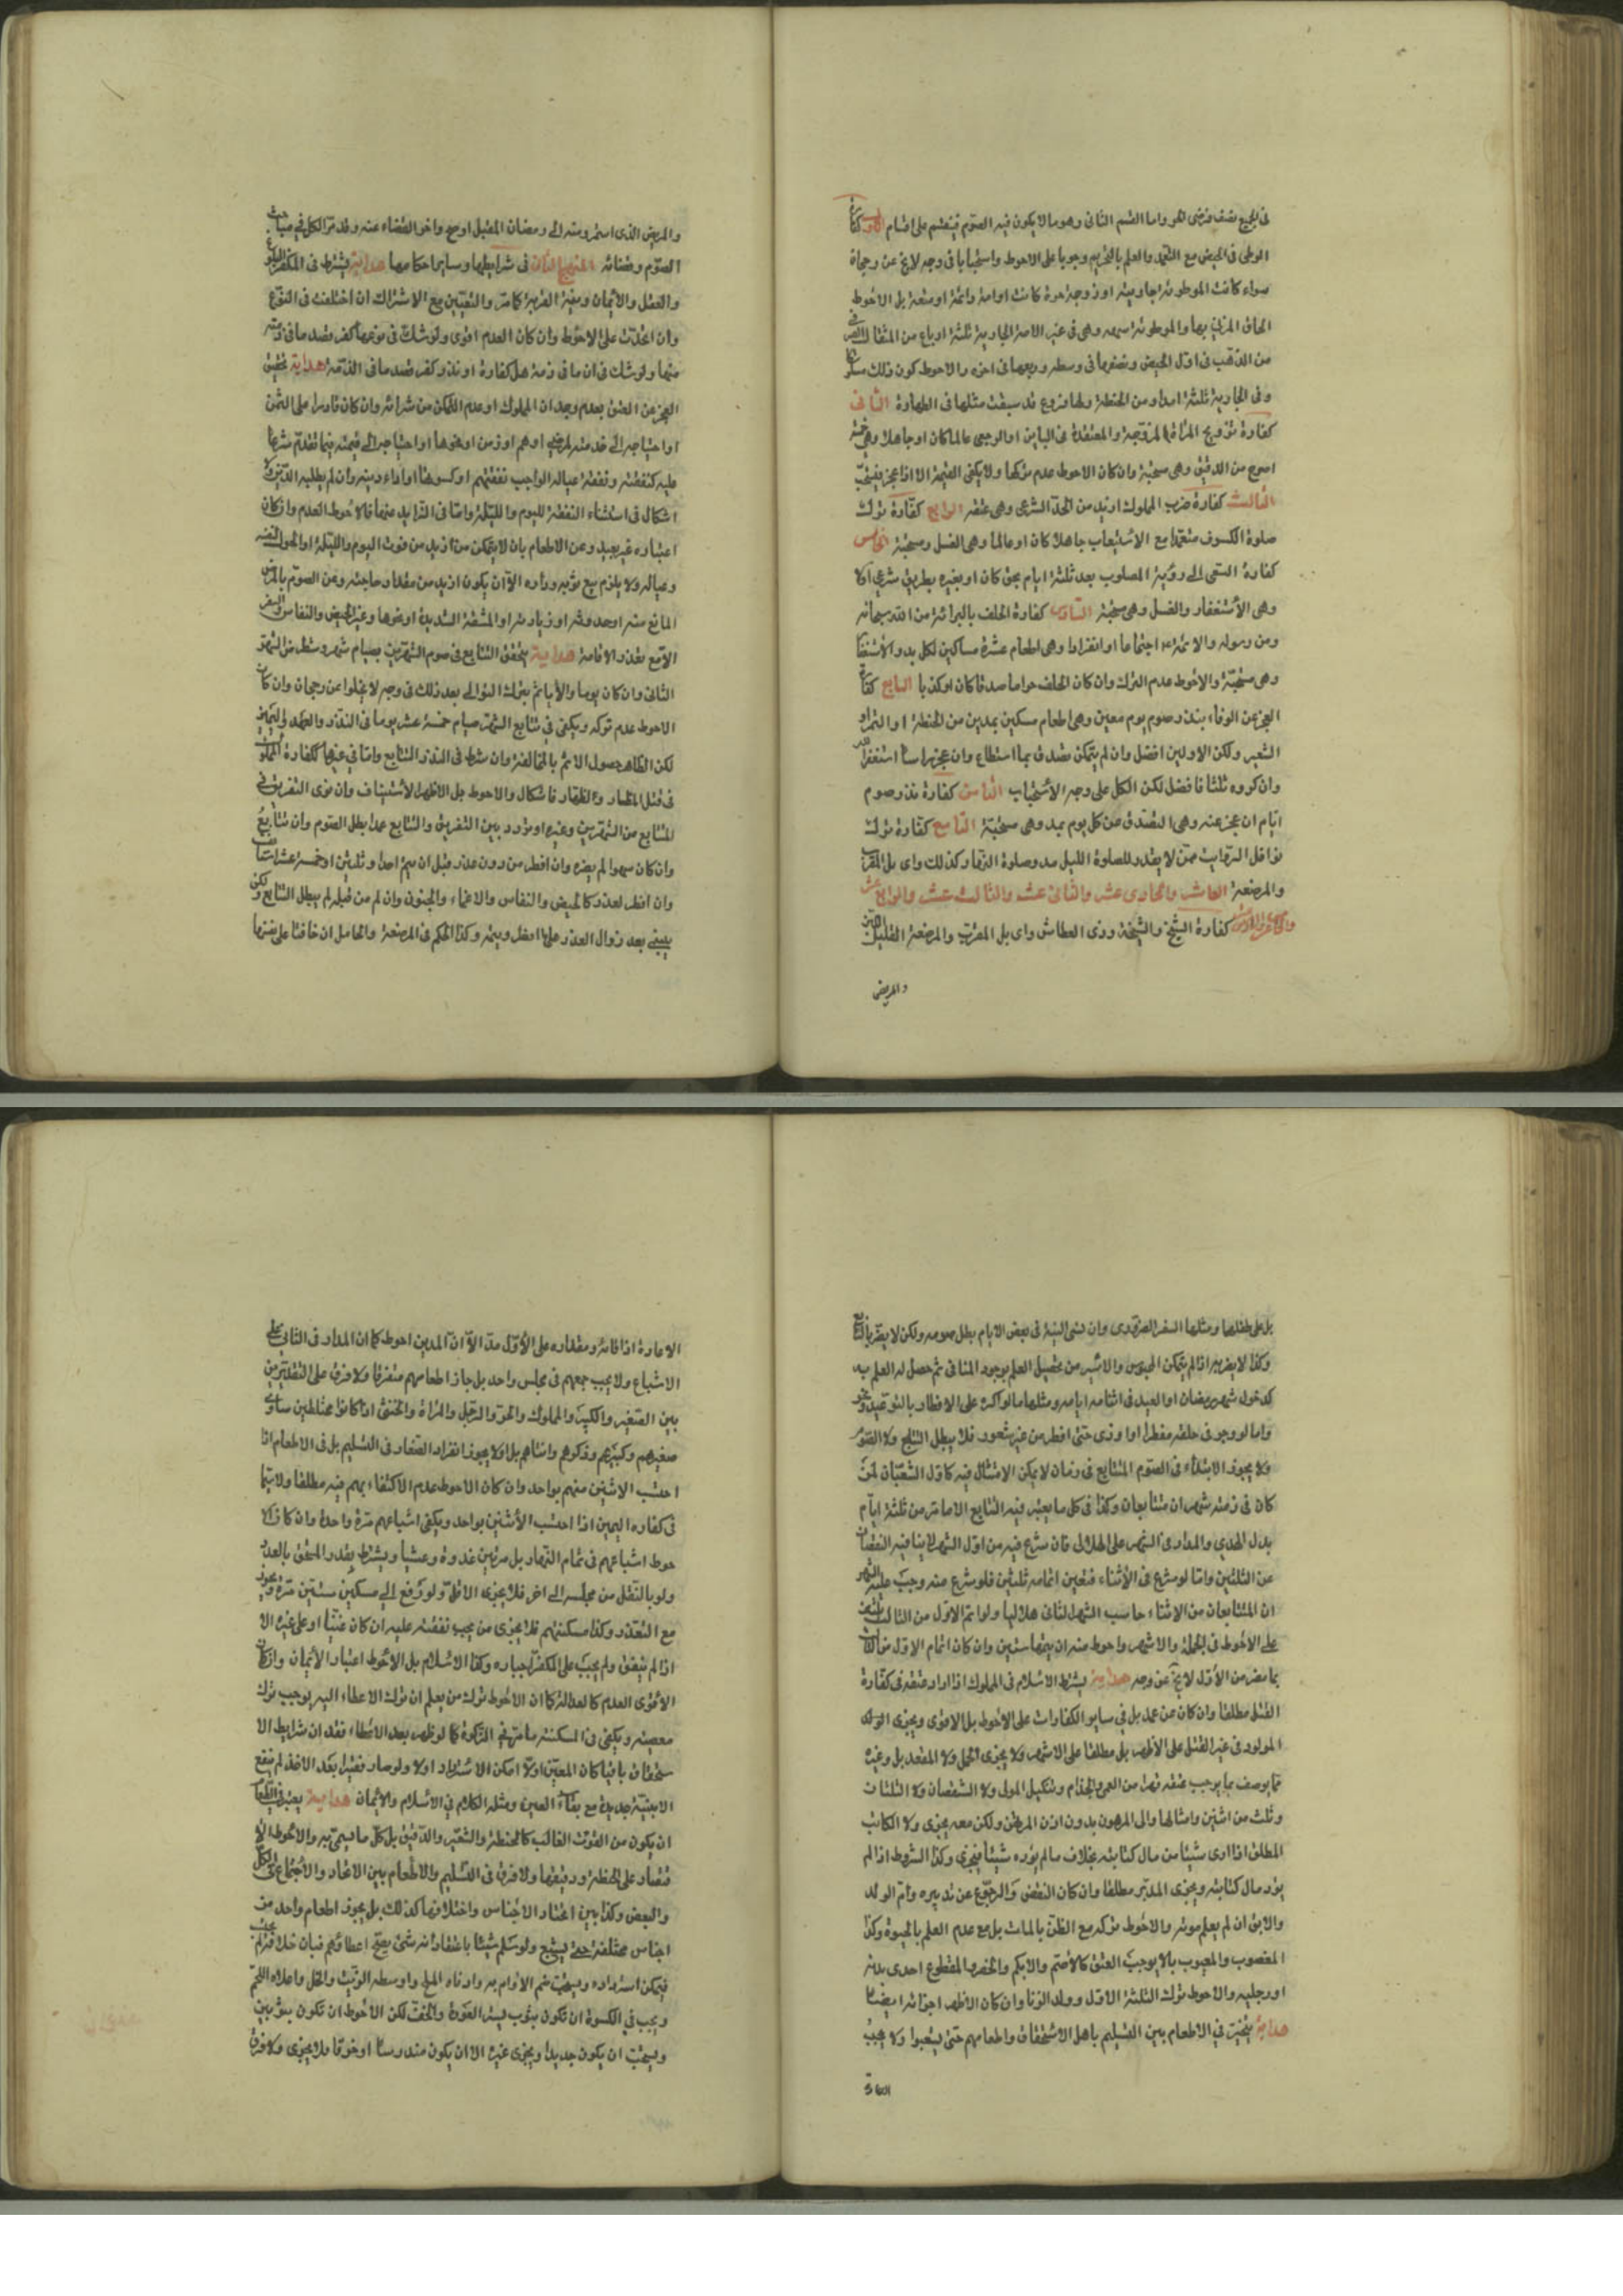 في الجميع نصف فرضى لحو واما القسم الثانى وهو مالا يكون فيه الصوم فينقسم على اقسام الاول كفارة
الوطى فى الحيض مع التعمد والعلم بالتحريم وجوبا على الاحوط واستحبابا فى وجه لا يخ عن رجحان
سواء كانت الموطوئة اجارية او زوجة حرة كانت اوامة دائمة او متعة بل الاحوط
الحاق المزنى بها والموطوئة بشبهة وهى فى غير الامة الجارية ثلثة ارباع من المثقال الصيرفى
من الذهب فى اول الحيض ونصفها فى وسطه وربعها فى اخره والاحوط كون ذلك مسكوكا
وفى الجارية ثلثة امداد من الحنطة ولها فروع قد سبقت مثلها فى الطهارة الثانى
كفارة تزويج المرأة المزوجة والمعتدة فى الباين او الرجعى عالما كان او جاهلا وهى خمسة
اصوع من الدقيق وهى مستحبة وان كان الاحوط عدم تركها ولا يكفى القيمة الا اذا عجز فيستحب
الثالث كفارة ضرب المملوك ازيد من الحد الشرعى وهى عتقه الرابع كفارة ترك
صلوة الكسوف متعمدا مع الاستيعاب جاهلا كان او عالما وهى الغسل ومستحبة الخامس
كفارة السعى الى رؤية المصلوب بعد ثلثة ايام بحق كان او بغيره بطريق شرعى اولا
وهى الاستغفار والغسل وهى مستحبة السادس كفارة الحلف بالبرائة من الله سبحانه
ومن رسوله والائمة ع اجتماعا او انفرادا وهى اطعام عشرة مساكين لكل مد والاستغفار
وهى مستحبة والاحوط عدم الترك وان كان الحلف حراما صدقا كان او كذبا السابع كفارة
العجز عن الوفاء بنذر صوم يوم معين وهى اطعام مسكين بمدين من الحنطة او التمر او
الشعير ولكن الاولين افضل وان لم يتمكن تصدق بما استطاع وان عجز راسا استغفر الله
وان كرره ثلثا فافضل لكن الكل على وجه الاستحباب الثامن كفارة نذر صوم
ايام ان عجز عنه وهى التصدق عن كل يوم بمد وهى مستحبة التاسع كفارة ترك
نوافل الرواتب ممن لا يقدر للصلوة الليل مد وصلوة النهار كذلك واى بل المقرب
والمرضعة العاشر والحادى عشر والثانى عشر والثالث عشر والرابع عشر
والخامس عشر كفارة الشيخ والشيخة وذى العطاش واى بل المقرب والمرضعة القليل اللبن
والمريض
والمريض الذى استمر مرضه الى رمضان المقبل او صح واخر القضاء عنه وقد مر الكل فى مباحث
الصوم وقضائه المنهج الثانى فى شرايطها وساير احكامها هداية يشترط فى المكفر البلوغ
والعقل والايمان ونية القربة كما مر والتعيين مع الاشتراك ان اختلفت فى النوع
وان اتحدت على الاحوط وان كان العدم اقوى ولو شك فى نوعها كفر بقصد ما فى ذمته
منها ولو شك فى ان ما فى ذمته هل كفارة او نذر كفر بقصد ما فى الذمة هداية يتحقق
العجز عن العتق بعدم وجدان المملوك او عدم التمكن من شرائه وان كان قادرا على الثمن
او احتياجه الى خدمته لمرض او هرم او زمن او نحوها او احتياجه الى قيمته فيما تقدم شرعا
عليه كنفقته ونفقة عياله الواجب نفقتهم او كسوتها او اداء دينه وان لم يطلبه الديان ولا
اشكال فى استثناء النفقة لليوم والليلة واما فى الزايد عنهما فالاحوط العدم وان كان
اعتباره غير بعيد وعن الاطعام بان لا يتمكن من ازيد من قوت اليوم والليلة او الحول لنفسه
وعياله ولا يلزم بيع ثوبه وداره الا ان يكون ازيد من مقدار حاجته وعن الصوم بالمرض
المانع منه او حدوثه او زيادته او المشقة الشديدة او نحوها وعن الحيض والنفاس والسفر
الا مع تعذر الاقامة هداية يتحقق التتابع فى صوم الشهرين بصيام شهر وشطر من الشهر
الثانى وان كان يوما ولا ياثم بترك التوالى بعد ذلك فى وجه لا يخلوا عن رجحان وان كان
الاحوط عدم تركه ويكفى فى تتابع الشهر صيام خمسة عشر يوما فى النذر والعهد واليمين
لكن الظاهر حصول الاثم بالمخالفة وان شرط فى النذر التتابع واما فى غيرها ككفارة المملوك
فى قتل الخطاء والظهار فاشكال والاحوط بل الاظهر الاستيناف وان نوى التفريق فى
المتتابع من الشهرين وغيره او تردد بين التفريق والتتابع عمدا بطل الصوم وان تتابع
وان كان سهوا لم يضره وان افطر من دون عذر قبل ان يتم احدا وثلثين او خمسة عشر استانف
وان افطر لعذر كالحيض والنفاس والاغماء والجنون وان لم من قبله لم يبطل التتابع ولكن
يبنى بعد زوال العذر على ما فعل وبينه وكذا الحكم فى المرضعة والحامل ان خافتا على نفسهما
بل على طفلهما ومثلها السفر الضرورى وان نسى النية فى بعض الايام بطل صومه ولكن لا يضر بالتتابع
وكذا لا يضر به اذا لم يتمكن المحبوس والاسير من تحصيل العلم بوجود المنافى ثم حصل له العلم به
كدخول شهر رمضان او العيد فى اثناء ايامه ومثلها ما لو اكره على الافطار بالتوعيد ونحوه
واما لو وجر فى حلقه مفطر او اوذى حتى افطر من غير شعور فلا يبطل التتابع ولا الصوم
ولا يجوز الابتداء فى الصوم المتتابع فى زمان لا يمكن الامتثال فيه كاول الشعبان لمن
كان فى ذمته شهران متتابعان وكذا فى كل ما يعتبر فيه التتابع الا ما مر من ثلثة ايام
بدل الهدى والمدار فى الشهر على الهلالى فان شرع فيه من اول الشهر لا ينافيه النقصان
عن الثلثين واما لو شرع فى الاثناء فتعين اتمامه ثلثين فلو شرع منه وجب عليه الشهر
ان المتتابعان من الاثناء حاسب الشهر الثانى هلاليا ولو اتم الاول من الثالث ثلثين
على الاحوط فى الجملة والاشهر واحوط منه ان يتمها ستين وان كان اتمام الاول من الثالث
بما مضى من الاول لا يخ عن وجه هداية يشترط الاسلام فى المملوك اذا اراد عتقه فى كفارة
القتل مطلقا وان كان عن عمد بل فى ساير الكفارات على الاحوط بل الاقوى ويجزى الولد
المولود فى غير القتل على الاظهر بل مطلقا على الاشهر ولا يجزى الحمل ولا المقعد بل وغيره
مما يوصف بما يوجب عتقه قهرا من العمى والجذام وتنكيل المولى ولا الشقصان ولا الثلثان
وثلث من اثنين وامثالها والى المرهون بدون اذن المرتهن ولكن معه يجزى ولا الكاتب
المطلق اذا ادى شيئا من مال كتابته بخلاف ما لم يؤده شيئا فيجزى وكذا المشروط اذا لم
يؤد مال كتابته ويجزى المدبر مطلقا وان كان النقض والرجوع عن تدبيره وام الولد
والابق ان لم يعلم موته والاحوط تركه مع الظن بالمات بل مع عدم العلم بالحيوة وكذا
المغصوب والمعيوب بما لا يوجب العتق كالاصم والابكم والخصى والمقطوع احدى يديه
او رجليه والاحوط ترك الثلثة الاول وولد الزنا وان كان الاظهر اجزائه ايضا
هداية يتخير فى الاطعام بين التسليم باهل الاستحقاق واطعامهم حتى يشبعوا ولا يجب
الاعادة
الاعادة اذا قاءه ومقداره على الاول مد الا ان المدين احوط كما ان المدار فى الثانى على
الاشباع ولا يجب جمعهم فى مجلس واحد بل جاز اطعامهم متفرقا ولا فرق على التقديرين
بين الصغير والكبير والمملوك والحر والرجل والمراة والخنثى اذا كانوا مختلطين ساوى
صغيرهم وكبيرهم وذكورهم واناثهم بل اولا يجوز انفراد الصغار فى التسليم بل فى الاطعام اذا
احتسب الاثنين منهم بواحد وان كان الاحوط عدم الاكتفاء بهم فيه مطلقا ولا سيما
فى كفاره اليمين اذا احتسب الاثنين بواحد ويكفى اشباعهم مرة واحدة وان كان الا
حوط اشباعهم فى تمام النهار بل مرتين غدوة وعشيا ويشترط بقدر المتفق بالعدد
ولو بالنقل من مجلسه الى اخر فلا يجزى الاقل ولو دفع الى مسكين ستين مرة ويجوز
مع التعذر وكذا مسكنتهم فلا يجزى من يجب نفقته عليه ان كان غنيا او على غيره الا
اذا لم ينفق ولم يجب على المكفر اجباره وكذا الاسلام بل الاحوط اعتبار الايمان وان كان
الاقوى العدم كالعدالة كما ان الاحوط ترك من يعلم ان ترك الاعطاء اليه يوجب ترك
معصيته ويكفى فى المسكنة ما مر فى الزكوة كما لو ظهر بعد الاعطاء فقد ان شرايط الا
ستحقاق باقيا كان المعين اولا امكن الاسترداد اولا ولو صار فقيرا بعد الاخذ لم ينفع
الا بنية جديدة مع بقاء العين ومثله الكلام فى الاسلام والايمان هداية يعتبر فى الطعام
ان يكون من القوت الغالب كالحنطة والشعير والدقيق بل كل ما يسمى به والاحوط الا
قتصار على الحنطة ودقيقها ولا فرق فى التسليم والاطعام بين الاتحاد والاجتماع فى الكل
والبعض وكذا بين اتحاد الاجناس واختلافها كذلك بل يجوز اطعام واحد من
اجناس مختلفة حتى يشبع ولو سلم شيئا باعتقاد انه شئ يصح اعطاؤهم فبان خلافه لم يجز
فيمكن استرداده ويستحب ضم الادام به وادناه الملح واوسطه الزيت والخل واعلاه اللحم
ويجب فى الكسوة ان تكون بثوب يستر العورة والخف لكن الاحوط ان تكون بثوبين
ويستحب ان يكون جديدا ويجزى غيره الا ان يكون مندرسا او خرقا فلا يجزى ولا فرق